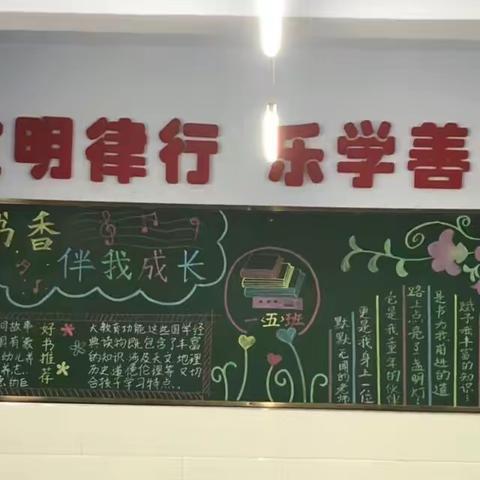 明律行 乐学善
书香
伴我成长
好书推荐
大教育功能,这些国学经
典读物既包含了丰富
的知识涉及天文 地理
历史道德伦理等 又切
合孩子学习特点..
一五班
赋予我丰富的知识;
是书为我前进的道
路上点亮了盏明灯;
它是我童年的伙伴
更是我身上一位
默默无闻的老师